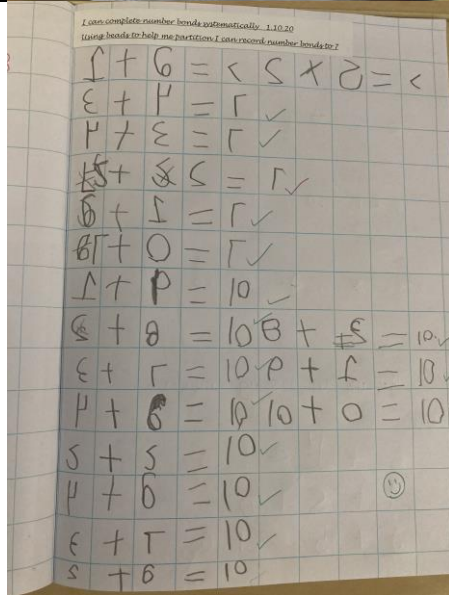 I can complete number bonds systematically 1.10.20
Using beads to help me partition I can record number bonds to 7
1 + 6 = 7 5 + 2 = 7
3 + 4 = 7
4 + 3 = 7
5 + 2 = 7
6 + 1 = 7
7 + 0 = 7
1 + 9 = 10
2 + 8 = 10 8 + 2 = 10
3 + 7 = 10 9 + 1 = 10
4 + 6 = 10 10 + 0 = 10
5 + 5 = 10
4 + 6 = 10
3 + 7 = 10
2 + 8 = 10